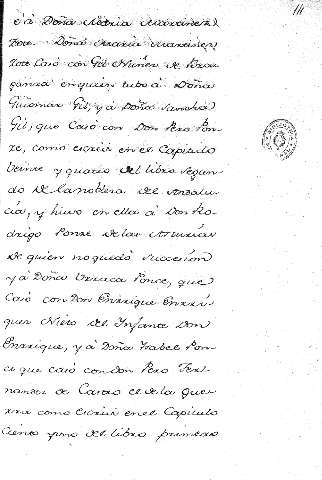 é á Doña Maria Martinez
Tore. Doña Maria Martinez
Tore Casó con Gil Nuñez de Bra
ganza en quien tubo á Doña
Guiomar Gil, y á Doña Sancha
Gil, que Casó con Don Pero Pon
ze, como escriui en el Capitulo
Veinte y quatro del libro segun
do De la nobleza del Andalu
cia, y huuo en ella á Don Ro
drigo Ponze de las Asturias
de quien no quedó succesion
y á Doña Urraca Ponce, que
Casó con Don Enrrique Enrri
quez Nieto del Infante Don
Enrrique, y á Doña Isabel Pon
ce que casó con Don Pero Fer
nandez de Castro el de la gue
rra como escriui en el Capitulo
Ciento y uno del libro primero